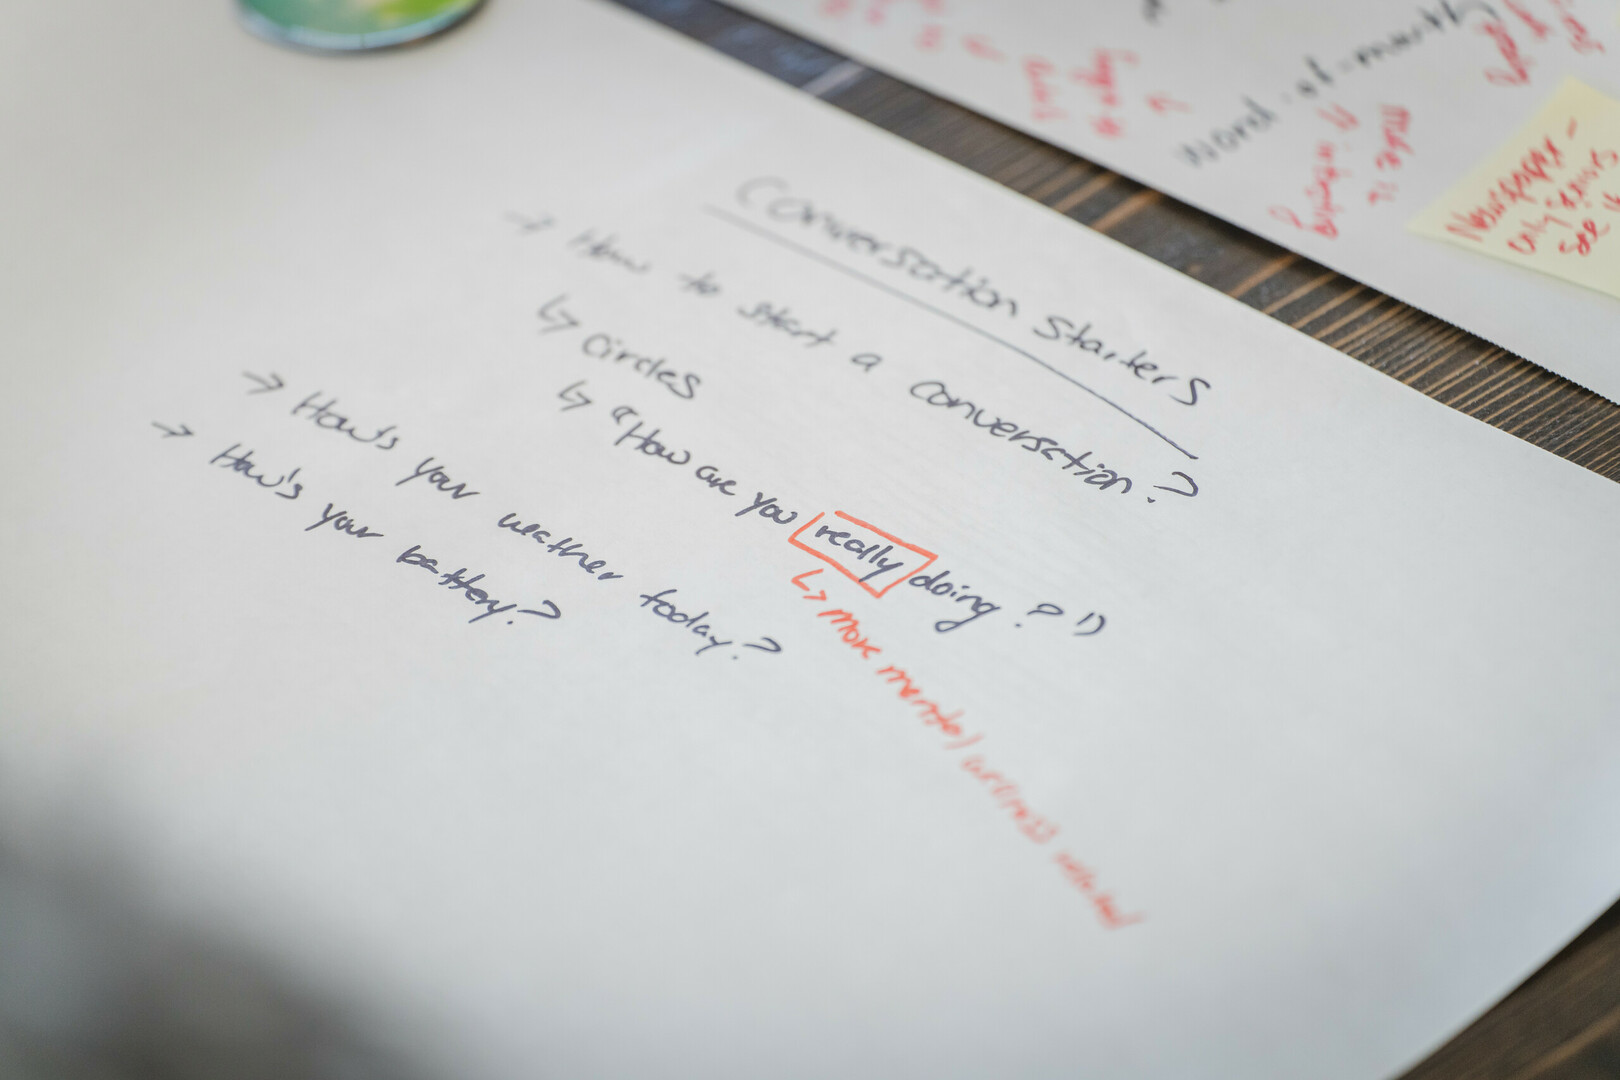 Conversation Starters
→ How to start a conversation?
↳ Circles
↳ "How are you really doing?"
↳ more mental/wellness related
→ How's your weather today?
→ How's your battery?
word-of-mouth
Make it
Newspaper -
only seniors
see it